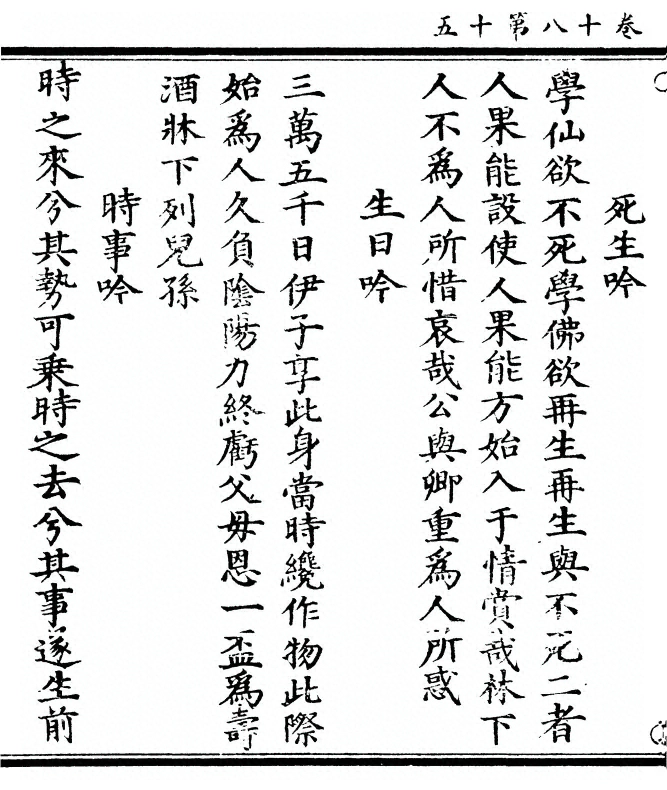 卷十八第十五
死生吟
學仙欲不死學佛欲再生再生與不死二者
人果能設使人果能方始入于情賞哉林下
人不爲人所惜哀哉公與卿重爲人所惑
生日吟
三萬五千日伊子享此身當時纔作物此際
始爲人久負陰陽力終虧父母恩一盃爲壽
酒牀下列兒孫
時事吟
時之來兮其勢可乗時之去兮其事遂生前